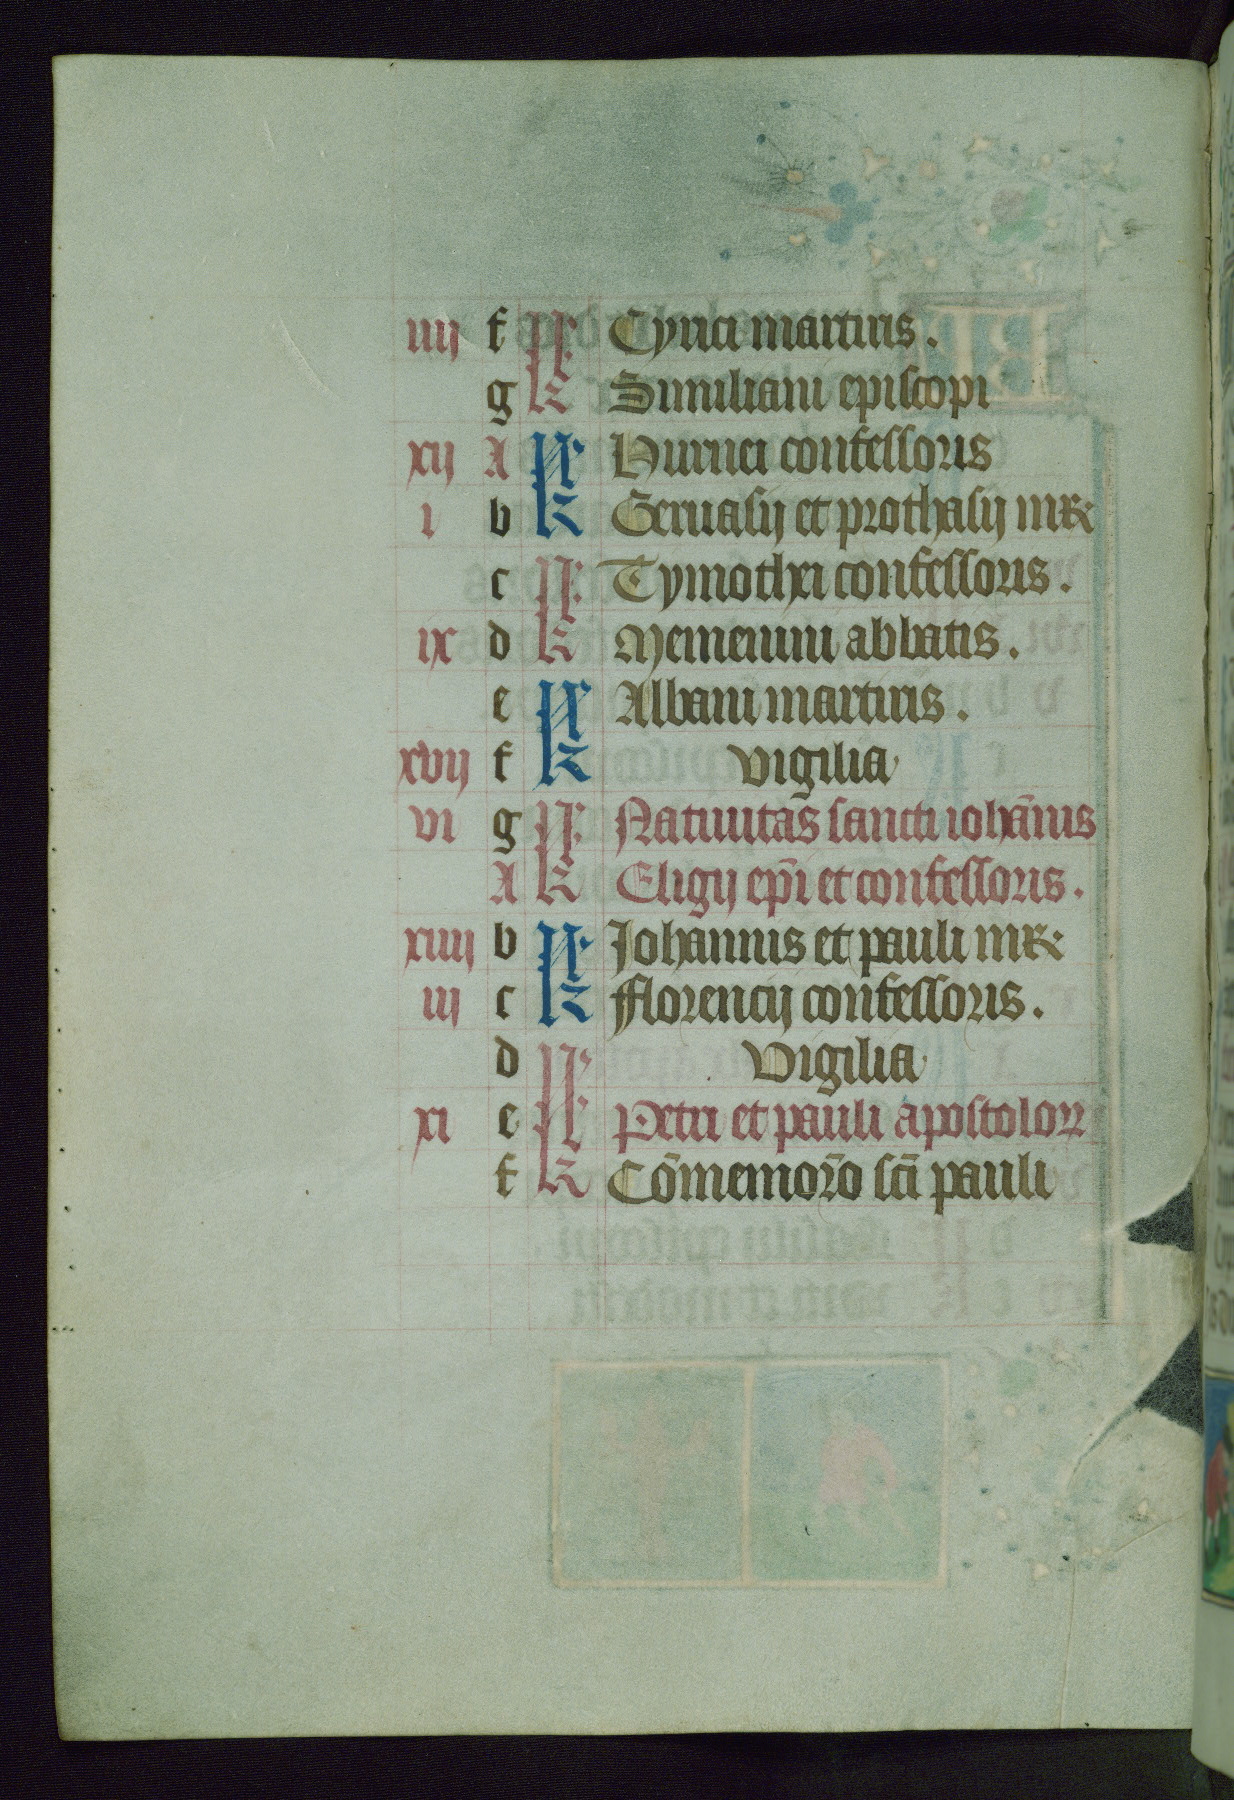 iiij f kl Cyrici martiris.
g kl Similiani episcopi
xij A kl Hurnei confessoris
i b kl Geruasij et prothasij mr̃
c kl Tymothei confessoris.
ix d kl Memenini abbatis.
e kl Albani martiris.
xvij f kl vigilia
vi g kl Natiuitas sancti iohãnis
A kl Eligij epĩ et confessoris.
xiiij b kl Johannis et pauli mr̃
iij c kl Florencij confessoris.
d kl Vigilia
xi e kl Petri et pauli apostolorꝝ
f kl Cõmemorõ scĩ pauli